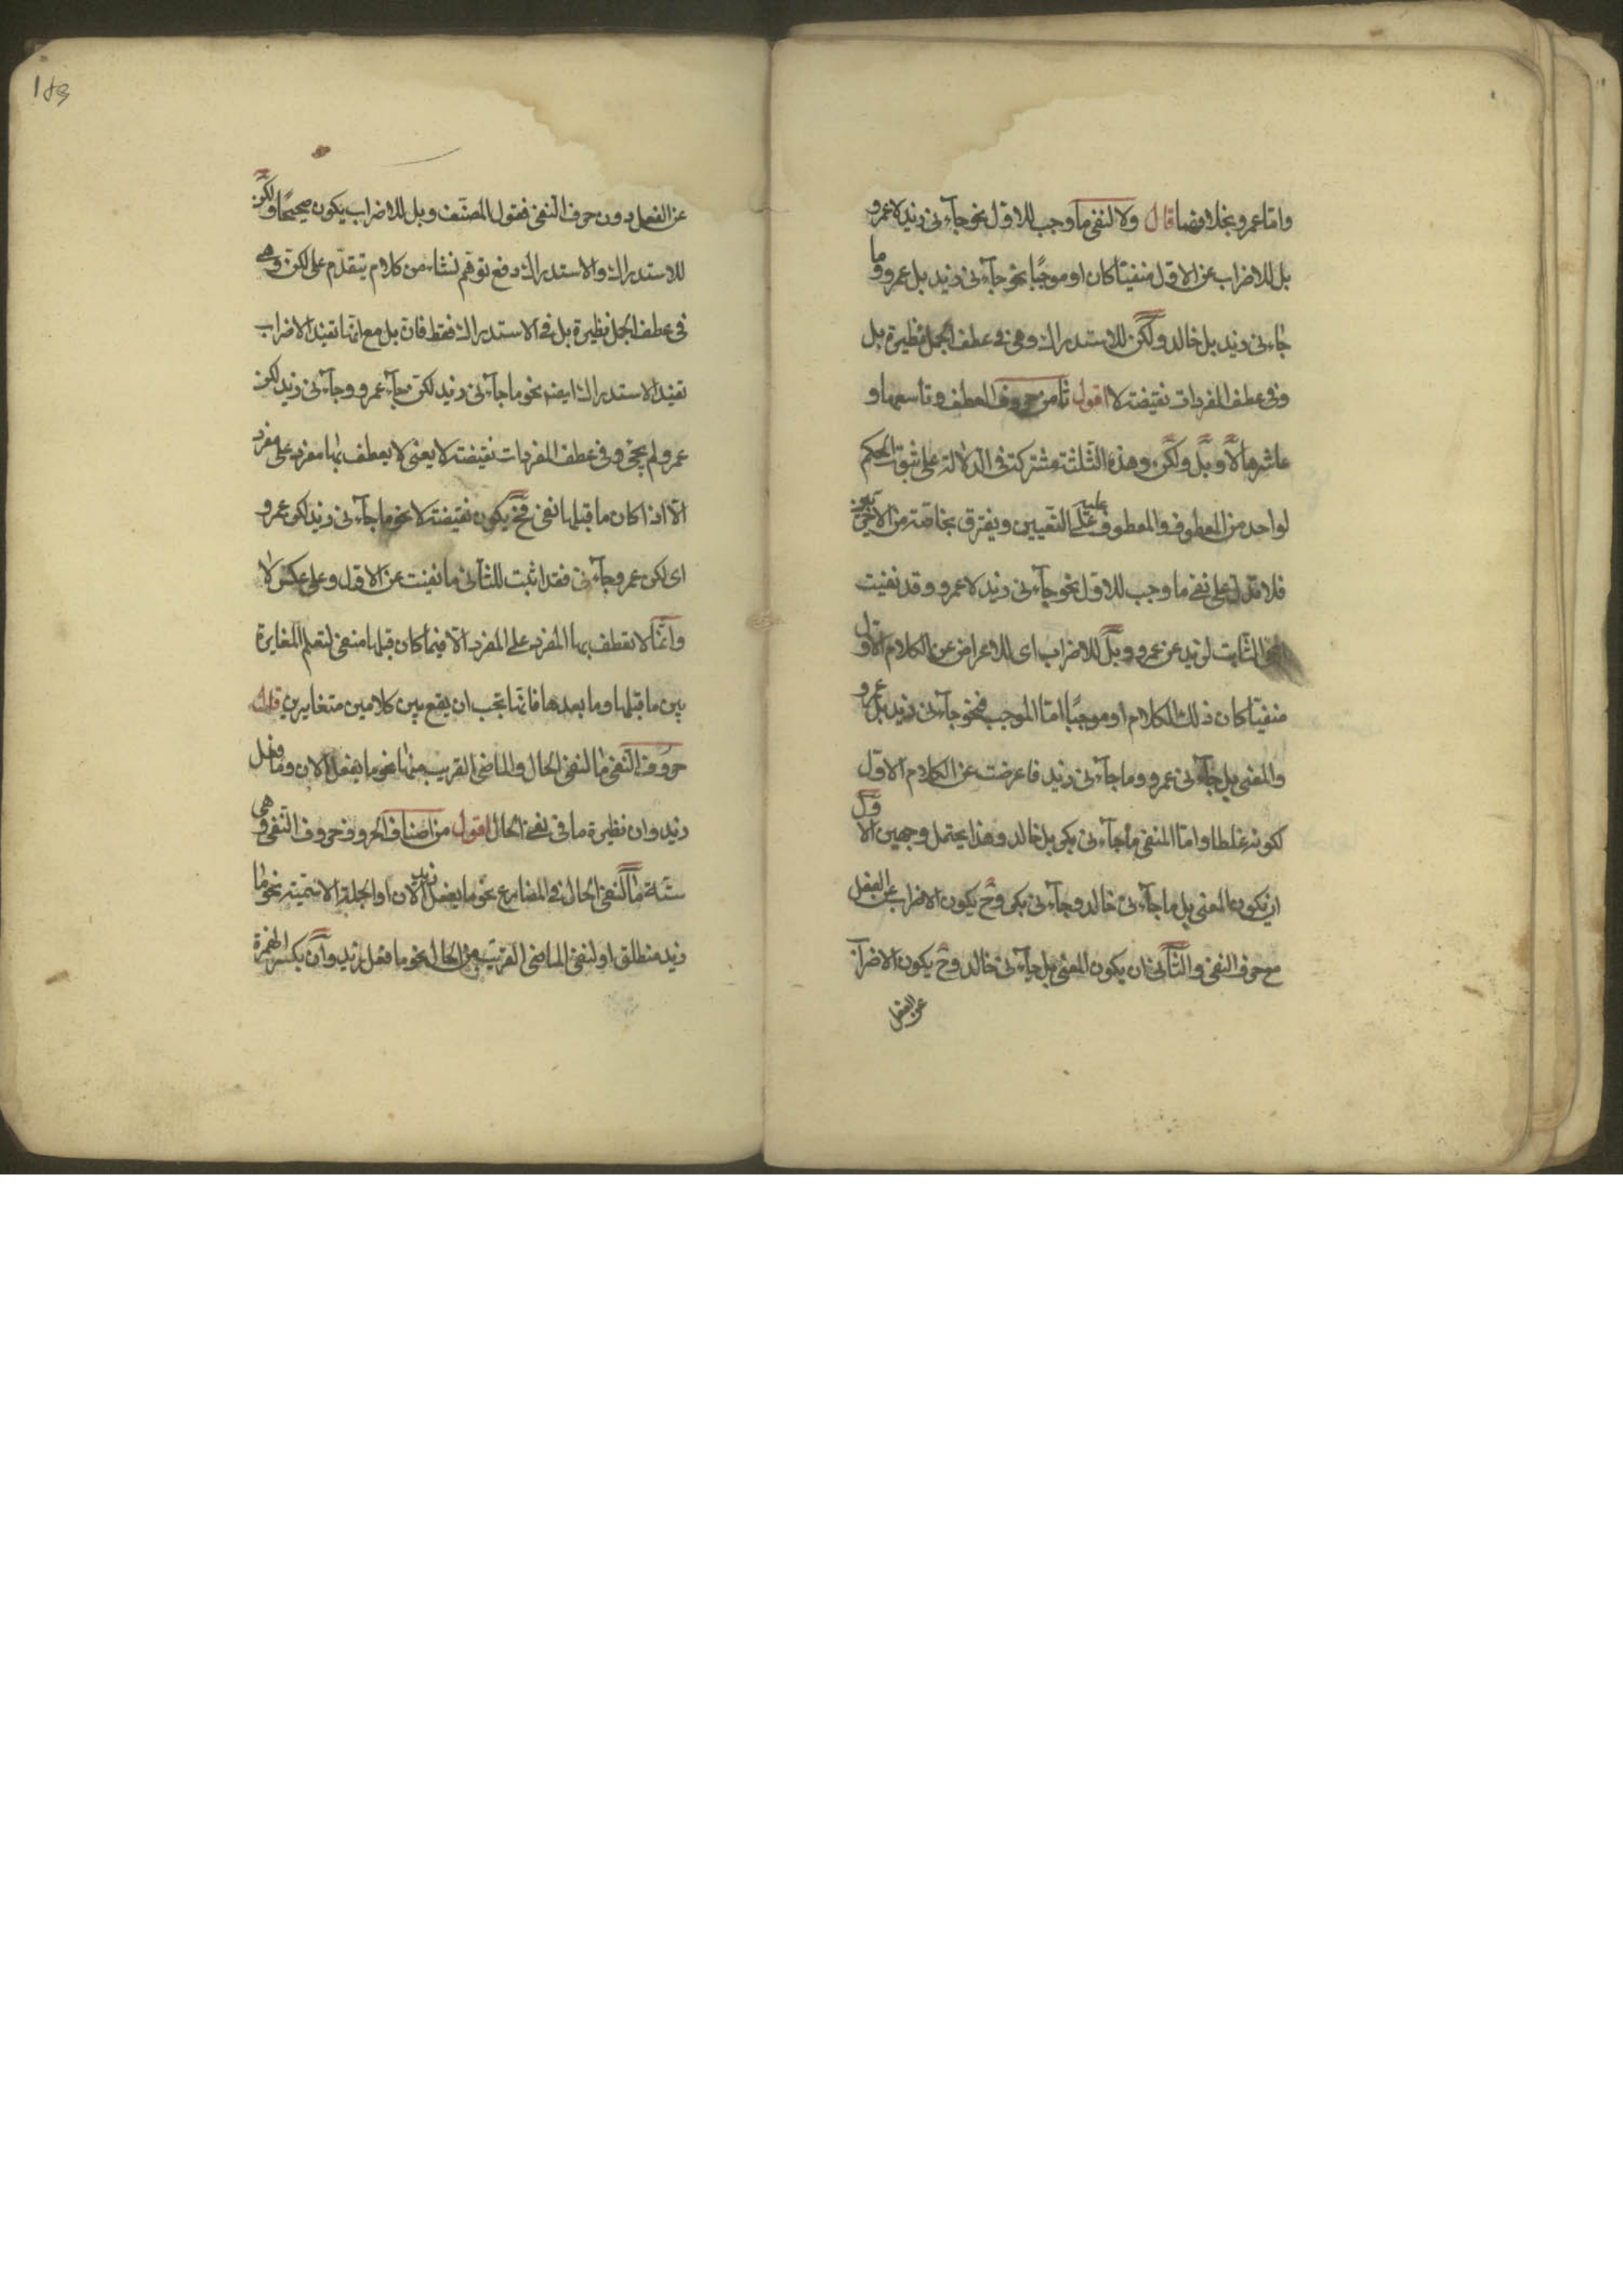 واما عمرو بخلافهما قال ولا لنفى ما وجب للاول نحو جاءنى زيد لا عمرو
بل للاضراب عن الاول منفيّا كان او موجبًا نحو جاءنى زيد بل عمرو وما
جاءنى زيد بل خالد ولكن للاستدراك وهى فى عطف الجمل نظيرة بل
وفى عطف المفردات نقيضة لا اقول ثامن حروف العطف وتاسعها و
عاشرها لا وبل ولكن وهذه الثلثة مشتركة فى الدلالة على ثبوت الحكم
لواحد من المعطوف والمعطوف عليه على التعيين ويفترق بخاصة من الاخرين
فلا تدل على نفى ما وجب للاول نحو جاءنى زيد لا عمرو وقد نفيت
الثابت لزيد عن عمرو وبل للاضراب اى للاعراض عن الكلام الاول
منفيّا كان ذلك الكلام او موجبًا اما الموجب فنحو جاءنى زيد بل عمرو
والمعنى بل جاءنى عمرو وما جاءنى زيد فاعرضت عن الكلام الاول
لكونه غلطا واما المنفى ما جاءنى بكر بل خالد وهذا يحتمل وجهين الاول
ان يكون المعنى بل ما جاءنى خالد وجاءنى بكر وح يكون الاضراب عن الفعل
مع حرف النفى والثانى ان يكون المعنى بل جاءنى خالد وح يكون الاضراب
عن الفعل
183
عن الفعل دون حرف النفى فقول المصنف وبل للاضراب يكون صحيحًا ولكن
للاستدراك والاستدراك دفع توهم نشاء من كلام يتقدم على لكن وهى
فى عطف الجمل نظيرة بل فى الاستدراك فقط فان بل مع انها تفيد الاضراب
تفيد الاستدراك ايضه نحو ما جاءنى زيد لكن جاء عمرو وجاءنى زيد لكن
عمرو لم يجئ وفى عطف المفردات نقيضة لا يعنى لا يعطف بها مفرد على مفرد
الا اذا كان ما قبلها نفى فح يكون نقيضة لا نحو ما جاءنى زيد لكن عمرو
اى لكن عمرو جاءنى فقد اثبت للثانى ما نفيت عن الاول وعلى عكس لا
وانما لا تعطف بها المفرد على المفرد الا فيما كان قبلها منفى لتعلم المغايرة
بين ما قبلها وما بعدها فانما يجب ان يقع بين كلامين متغايرين قال
حروف النفى ما لنفى الحال والماضى القريب منها نحو ما يفعل الان وما فعل
زيد وان نظيرة ما فى نفى الحال اقول من اصناف الحروف حروف النفى وهى
ستة ما لنفى الحال فى المضارع نحو ما يفعل زيد الان او الجملة الاسمية نحو ما
زيد منطلق او لنفى الماضى القريب من الحال نحو ما فعل زيد وان بكسر الهمزة